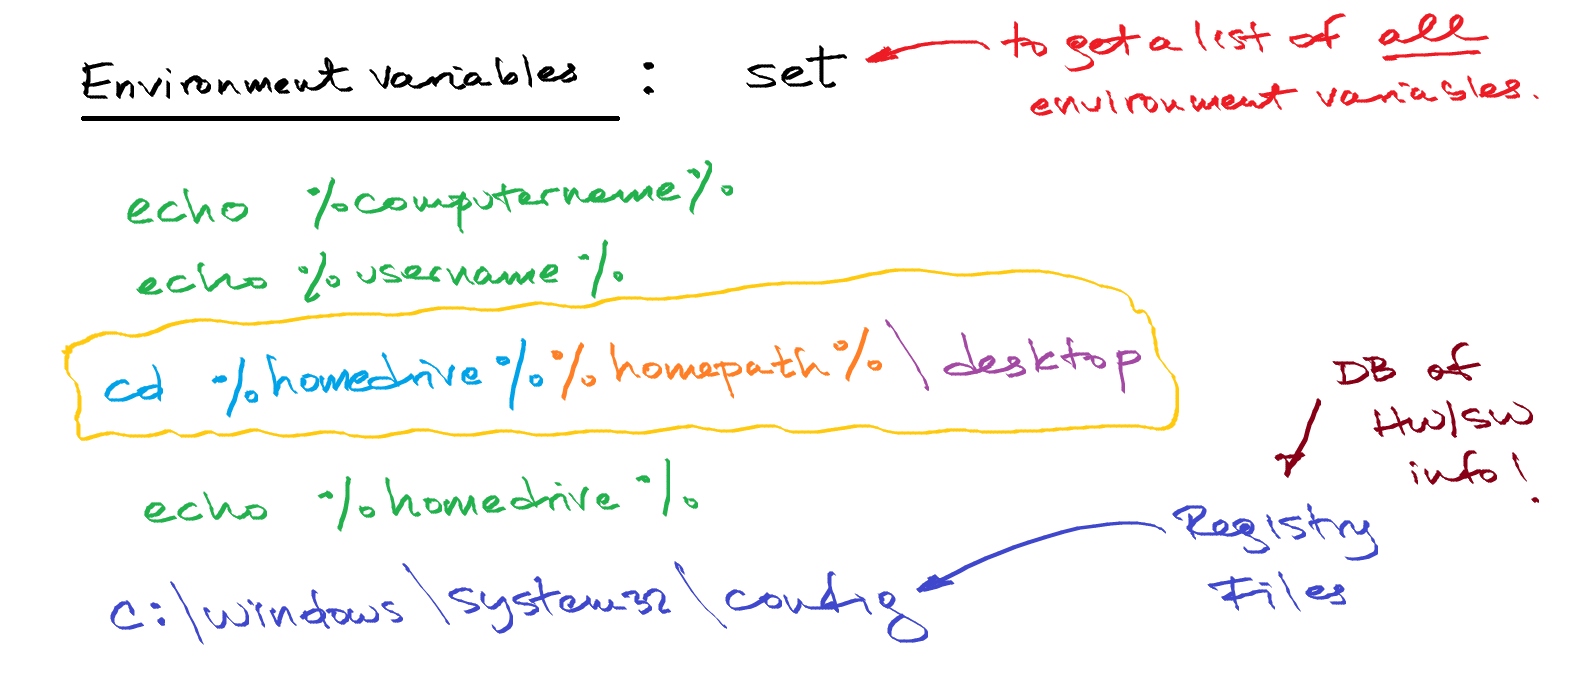 Environment variables : set
to get a list of all
environment variables.
echo %computername%
echo %username%
cd %homedrive%%homepath%\desktop
DB of
HW/SW
info!
echo %homedrive%
Registry
Files
c:\windows\system32\config